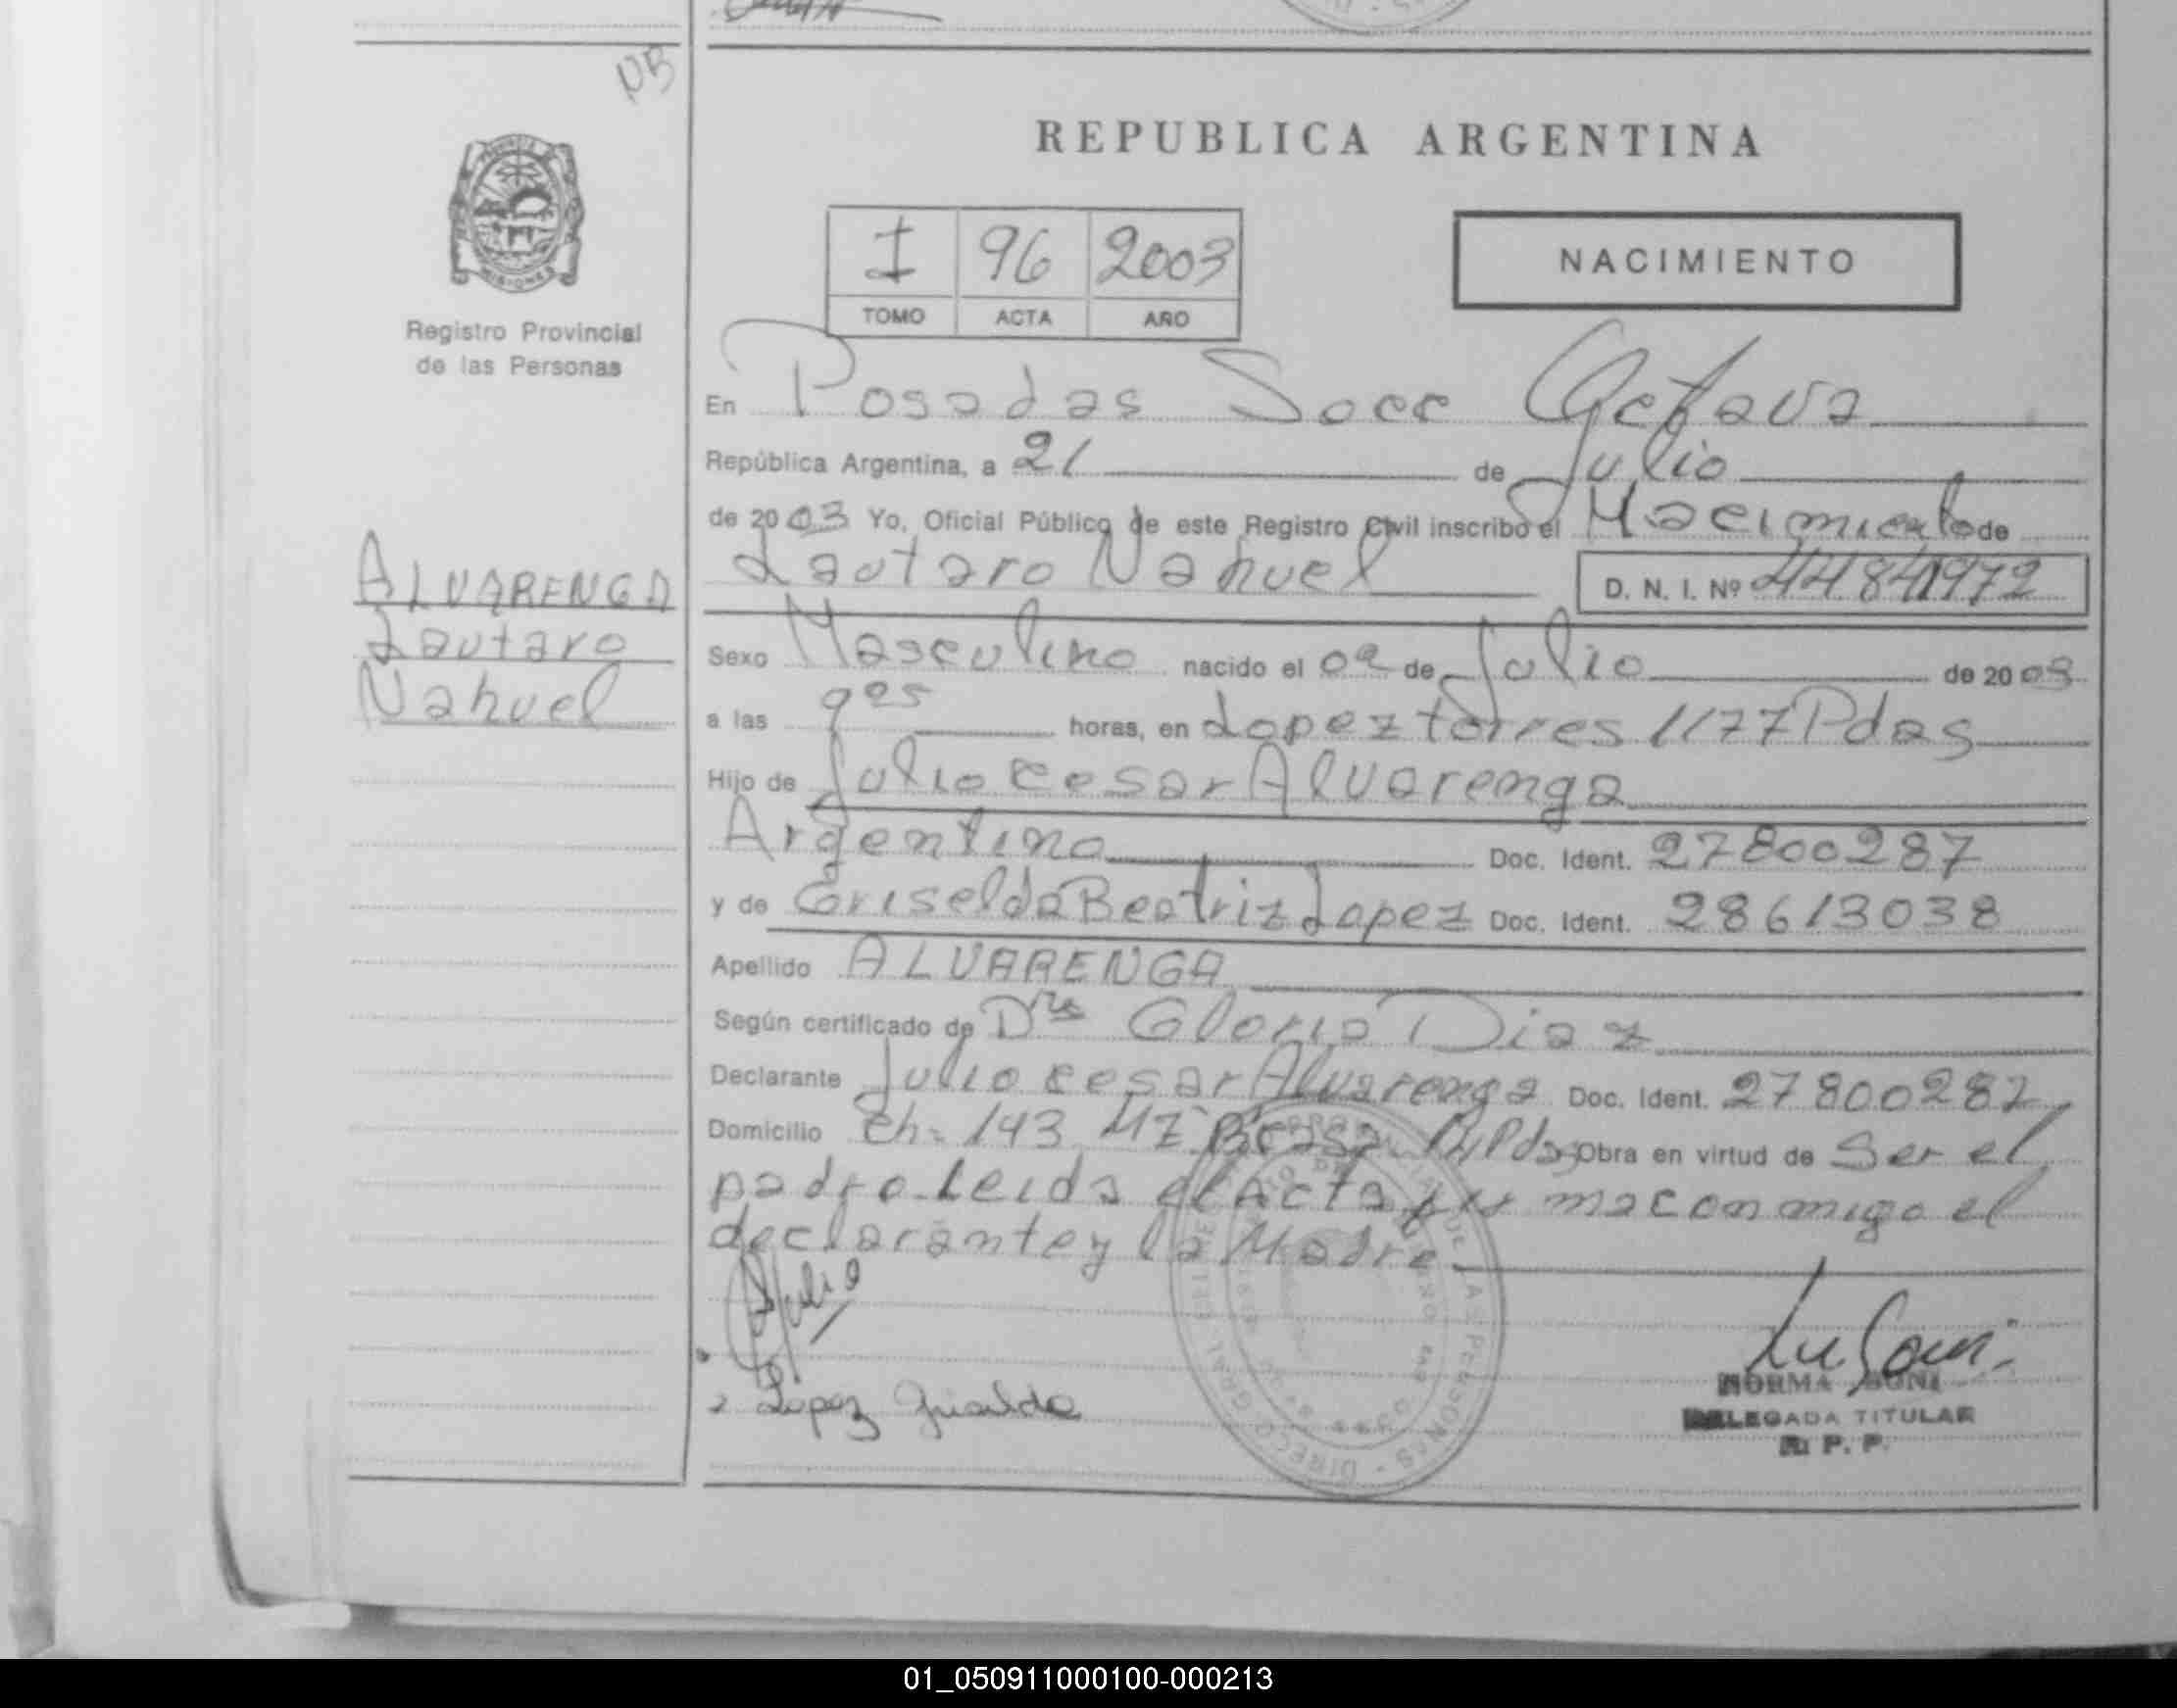 NB
REPUBLICA ARGENTINA
I 96 2003
TOMO ACTA AÑO
NACIMIENTO
Registro Provincial
de las Personas
ALVARENGA
Lautaro
Nahuel
En Posadas Secc Octava
República Argentina, a 21 de Julio
de 2003 Yo, Oficial Público de este Registro Civil inscribo el Nacimiento de
Lautaro Nahuel D. N. I. Nº 44841972
Sexo Masculino nacido el 02 de Julio de 2003
a las 9 horas, en Lopez torres 1177 Pdas
Hijo de Julio Cesar Alvarenga
Argentino Doc. Ident. 27800287
y de Griselda Beatriz Lopez Doc. Ident. 28613038
Apellido ALVARENGA
Según certificado de Dra Gloria Diaz
Declarante Julio Cesar Alvarenga Doc. Ident. 27800287
Domicilio Ch. 143 MZ Pdas Obra en virtud de Ser el
padre. Leida el Acta firma conmigo el
declarante y la Madre
Julio
Lopez Griselda
NORMA BONI
DELEGADA TITULAR
R. P. P.
01_050911000100-000213